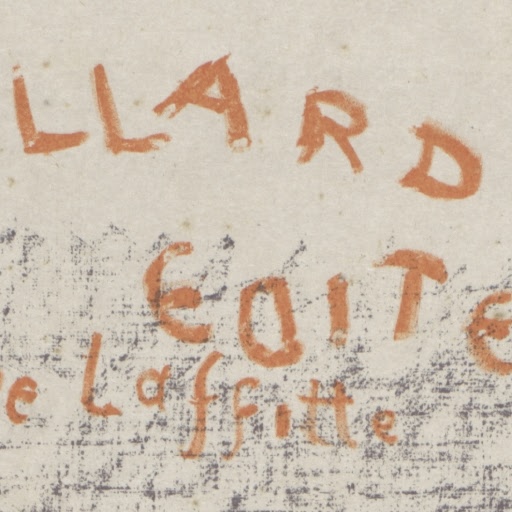 LLARD
EDITE
e Laffitte